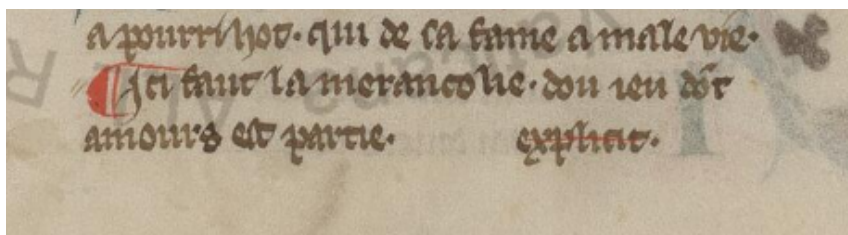 a pourri hot. qui de sa fame a male vie.
¶ Ici faut la merancolie. dou ieu dōt
amours est partie. explicit.